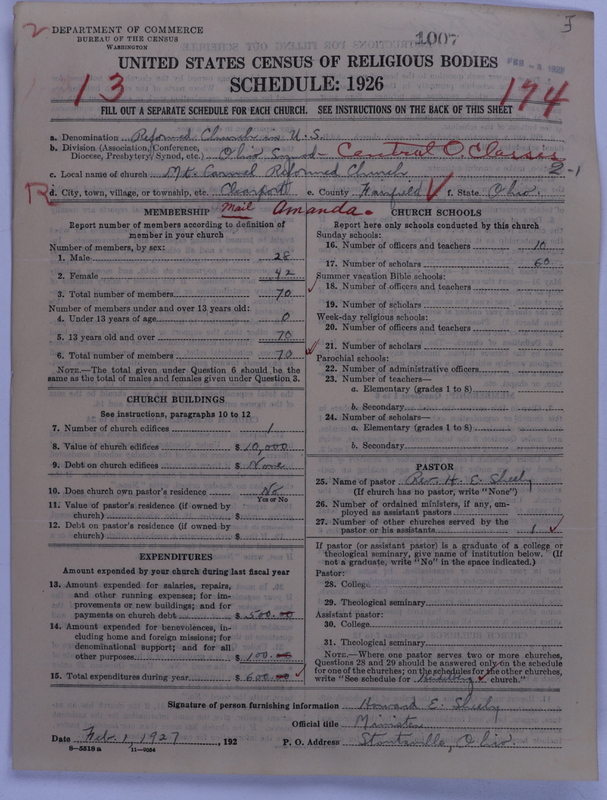 DEPARTMENT OF COMMERCE
BUREAU OF THE CENSUS
WASHINGTON
1007
UNITED STATES CENSUS OF RELIGIOUS BODIES
SCHEDULE: 1926
13
174
FILL OUT A SEPARATE SCHEDULE FOR EACH CHURCH. SEE INSTRUCTIONS ON THE BACK OF THIS SHEET
a. Denomination Reformed Church in U.S.
b. Division (Association, Conference,
Diocese, Presbytery, Synod, etc.) Ohio Synod - Central O. Classes
2-1
c. Local name of church Mt. Carmel Reformed Church
R d. City, town, village, or township, etc. Clearport e. County Fairfield f. State Ohio.
Mail Amanda.
MEMBERSHIP
Report number of members according to definition of
member in your church
Number of members, by sex:
1. Male 28
2. Female 42
3. Total number of members 70
Number of members under and over 13 years old:
4. Under 13 years of age 0
5. 13 years old and over 70
6. Total number of members 70
NOTE.—The total given under Question 6 should be the
same as the total of males and females given under Question 3.
CHURCH BUILDINGS
See instructions, paragraphs 10 to 12
7. Number of church edifices 1
8. Value of church edifices $ 10,000
9. Debt on church edifices $ None
10. Does church own pastor's residence No
Yes or No
11. Value of pastor's residence (if owned by
church) $
12. Debt on pastor's residence (if owned by
church) $
EXPENDITURES
Amount expended by your church during last fiscal year
13. Amount expended for salaries, repairs,
and other running expenses; for im-
provements or new buildings; and for
payments on church debt $ 500.00
14. Amount expended for benevolences, in-
cluding home and foreign missions; for
denominational support; and for all
other purposes $ 100.00
15. Total expenditures during year $ 600.00
CHURCH SCHOOLS
Report here only schools conducted by this church
Sunday schools:
16. Number of officers and teachers 10
17. Number of scholars 60
Summer vacation Bible schools:
18. Number of officers and teachers
19. Number of scholars
Week-day religious schools:
20. Number of officers and teachers
21. Number of scholars
Parochial schools:
22. Number of administrative officers
23. Number of teachers—
a. Elementary (grades 1 to 8)
b. Secondary
24. Number of scholars—
a. Elementary (grades 1 to 8)
b. Secondary
PASTOR
25. Name of pastor Rev. H. E. Sheely
(If church has no pastor, write "None")
26. Number of ordained ministers, if any, em-
ployed as assistant pastors
27. Number of other churches served by the
pastor or his assistants 1
If pastor (or assistant pastor) is a graduate of a college or
theological seminary, give name of institution below. (If
not a graduate, write "No" in the space indicated.)
Pastor:
28. College
29. Theological seminary
Assistant pastor:
30. College
31. Theological seminary
NOTE.—Where one pastor serves two or more churches,
Questions 28 and 29 should be answered only on the schedule
for one of the churches; on the schedules for the other churches,
write "See schedule for church."
Signature of person furnishing information Howard E. Sheely
Official title Minister
Date Feb. 1, 1927, 192 P. O. Address Stoutsville, Ohio.
8—5518 a 11—9584